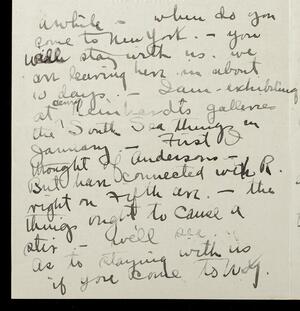 awhile - when do you
come to New York. - you
will stay with us. we
are leaving here in about
10 days. - I am exhibiting
at Reinhardts galleries
the South Sea things in
January. - First I
thought of Andersons -
But have connected with R.
right on Fifth ave. - the
things ought to cause a
stir. - we'll see.
as to staying with us
if you come to N.Y.